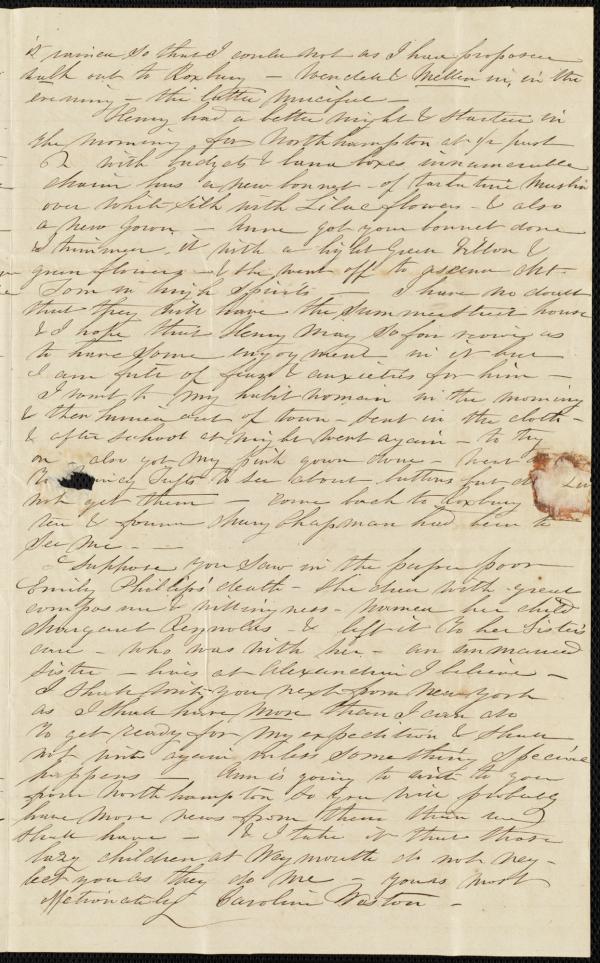 it rained so that I could not as I had proposed
walk out to Roxbury — Wendell & Mellen in, in the
evening — the latter merciful —
Henry had a better night & started in
the morning for Northampton at 1/2 past
2 with budgets & band boxes innumerable
Maria has a new bonnet — of Tarlatine Muslin
over White Silk with Lilac flowers — & also
a new gown — Anne got your bonnet done
& trimmed it with a light Green ribbon &
green flowers — & she went off to ascend Mt.
Tom in high Spirits — I have no doubt
that they will have the Summer Street house
& I hope that Henry may so far revive as
to have some enjoyment in it but
I am full of fears & anxieties for him —
I went to my habit woman in the morning
& then hurried out of town — sent in the cloth —
& after school at night went again — to try
on — also got my pink gown done — went
to Tufts to see about buttons but did
not get them — came back to Roxbury
tea & found Mary Chapman had been to
see me —
I suppose you saw in the paper poor
Emily Phillips' death — She died with great
composure & willingness — named her child
Margaret Reynolds & left it to her Sister's
care — who was with her — an unmarried
Sister — lives at Alexandria I believe —
I shall write you next from New York
as I shall have more than I can do
to get ready for my expedition & shall
not write again unless something special
happens — Ann is going to write to you
from Northampton, so you will probably
have more news from them than we
shall have — & I take it that those
lazy children at Weymouth do not neg-
lect you as they do me — yours most
affectionately Caroline Weston —